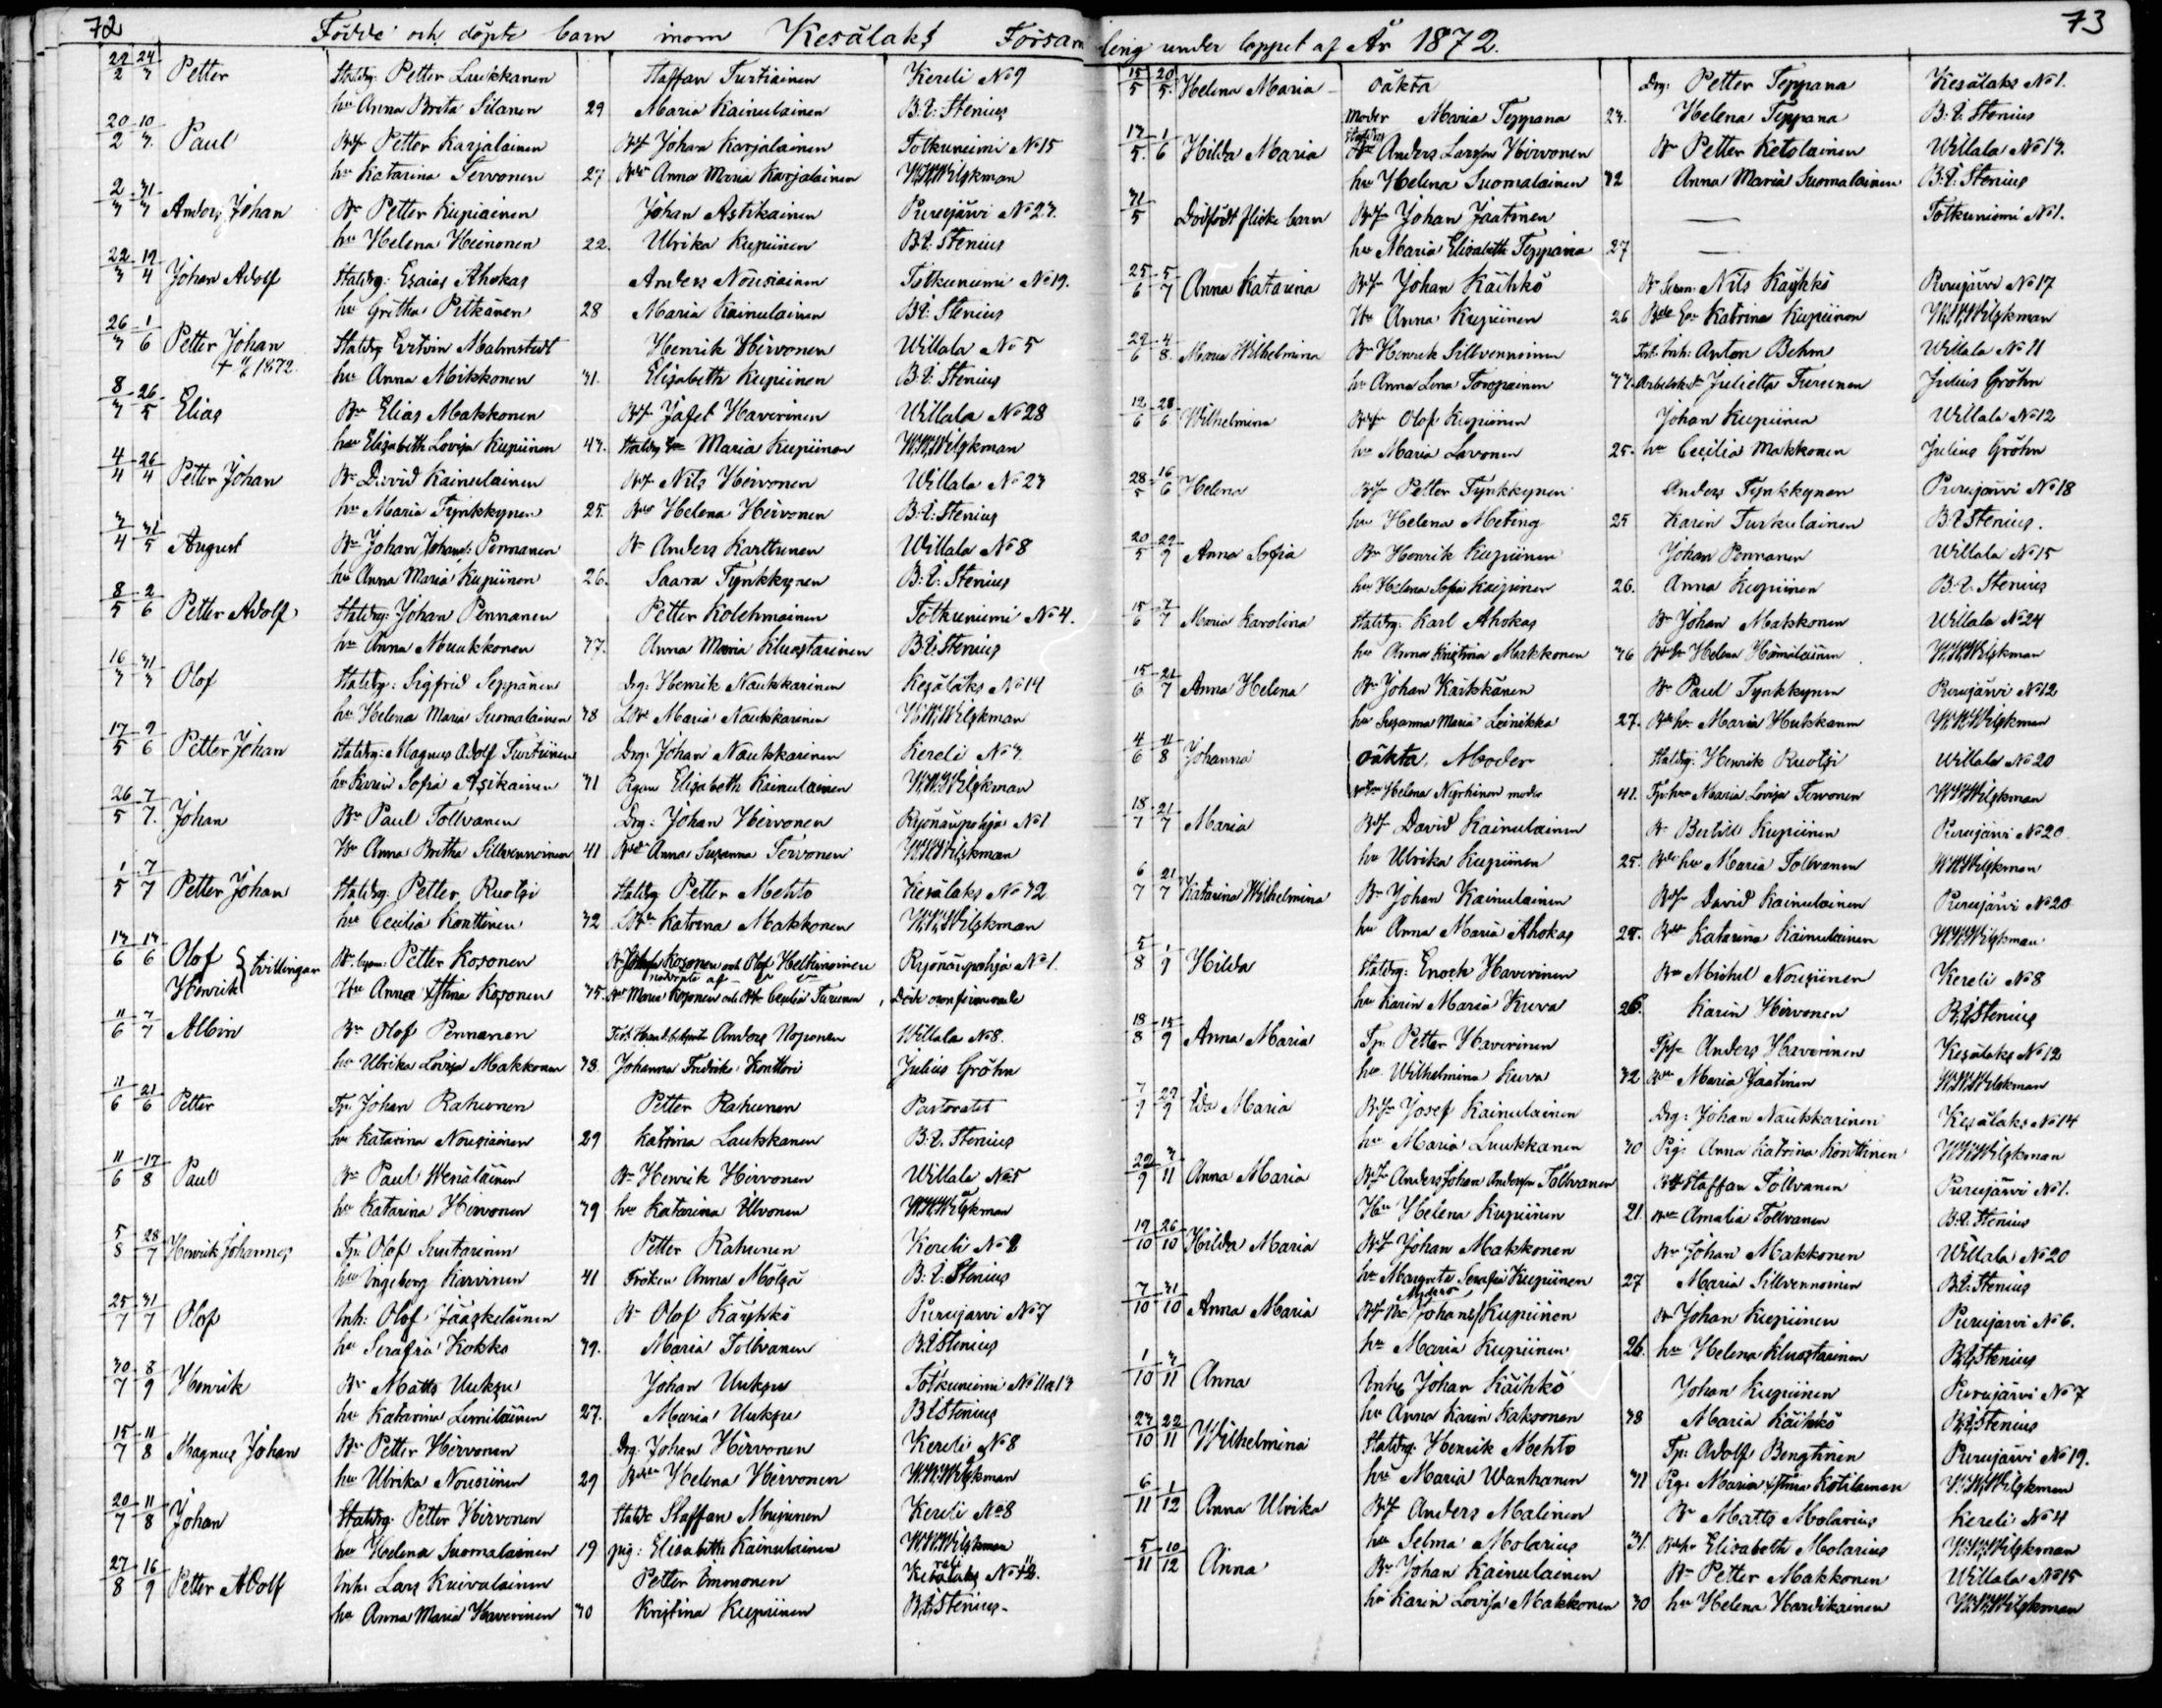 72
Födde och döpte barn inom Kesälaks Församling under loppet af År 1872.
73
22/2 24/3 Petter Statdrg: Petter Laukkanen Staffan Turtiainen Kereli No 9
hu Anna Brita Silanen 29 Maria Kainulainen B.E: Stenius
20/2 10/3 Paul Petter Karjalainen Johan Karjalainen Totkuniemi No 15
hu Katarina Tervonen 27 Anna Maria Karjalainen W.W.Wilskman
2/3 31/3 Anders Johan Bn Petter Kupiainen Johan Astikainen Purujärvi No 23.
hu Helena Heinonen 22. Ulrika Kupiinen B.E: Stenius
22/3 19/4 Johan Adolf Statdrg: Esaias Ahokas Anders Nousiainen Totkuniemi No 19.
hu Gretha Pitkänen 28 Maria Kainulainen B.E: Stenius
26/3 1/6 Petter Johan Statdrg Malmstedt Henrik Hirvonen Willala No 5
1872. hu Anna Mikkonen 31. Elisabeth Kupiinen B.E: Stenius
8/3 26/5 Elias Bn Elias Makkonen Jafet Haverinen Willala No 28
hu Elisabeth Lovisa Kupiinen 43. Maria Kupiinen W.W.Wilskman
4/4 26/4 Petter Johan Bn David Kainulainen Nils Hirvonen Willala No 23
hu Maria Tynkkynen 25. Helena Hirvonen B.E: Stenius
3/4 31/5 August Bn Johan Johans: Pennanen Bn Anders Karttunen Willala No 8
hu Anna Maria Kupiinen 26. Saara Tynkkynen B.E: Stenius
8/5 2/6 Petter Adolf Statdrg: Johan Pennanen Petter Kolehmainen Totkuniemi No 4.
hu Anna Muukkonen 37. Anna Maria Kluastarinen B.E: Stenius
16/3 31/3 Olof Statdrg: Sigfrid Seppänen Drg: Henrik Naukkarinen Kesälaks No 14
hu Helena Maria Suomalainen 38 Maria Naukkarinen W.W.Wilskman
17/5 9/6 Petter Johan Statdrg: Magnus Adolf Turtiinen Drg: Johan Naukkarinen Kereli No 3.
hu Karin Sofia Asikainen 31 Elisabeth Kainulainen W.W.Wilskman
26/5 7/7. Johan Bn Paul Tollvanen Drg: Johan Hirvonen Ryönänpohja No 1
Hu Anna Britha Sillvennoinen 41 Anna Susanna Tervonen W.W.Wilskman
1/5 7/7 Petter Johan Statdrg: Petter Ruotsi Statdrg Petter Mehto Kesälaks No 32
hu Cecilia Konttinen 32 Katrina Makkonen W.W.Wilskman
13/6 13/6 Olof } tvillingar Petter Kosonen Kosonen och Olof Heltunoinen Ryönänpohja No 1.
Henrik Hu Anna Stina Kosonen 35. Maria Kosonen och Cecilia Turunen
11/6 7/7 Albin Bn Olof Pennanen Anders Noponen Willala No 8.
hu Ulrika Lovisa Makkonen 38 Johanna Fredrika Konttori Julius Gröhn
11/6 21/6 Petter Tp: Johan Rahunen Petter Rahunen Pastoratet
hu Katarina Nousiainen 29 Katrina Laukkanen B.E. Stenius
11/6 17/8 Paul Bn Paul Wenäläinen Bn Henrik Hirvonen Willala No 5
hu Katarina Hirvonen 39 hu Katarina Ullvonen W.W.Wilskman
5/8 28/7 Henrik Johannes Tp: Olof Suutarinen Petter Rahunen Kereli No 2
hu Ingeborg Karvinen 41 Fröken Anna Mölsä B.E: Stenius
25/7 31/7 Olof Inh: Olof Jääskeläinen Bn Olof Käyhkö Purujärvi No 7
hu Serafia Kokko 39. Maria Tollvanen B.E.Stenius
30/7 8/9 Henrik Bn Matts Uuksu Johan Uuksu Totkuniemi No 11 a 13
hu Katarina Lemiläinen 27. Maria Uuksu B.E.Stenius
15/7 11/8 Magnus Johan Bn Petter Hirvonen Drg: Johan Hirvonen Kereli No 8
hu Ulrika Nousiinen 29 Helena Hirvonen W.W.Wilskman
20/7 11/8 Johan Statdrg: Petter Hirvonen Staffan Kereli No 8
hu Helena Suomalainen 19 pig: Elisabeth Kainulainen W.W.Wilskman
27/8 16/9 Petter Adolf Inh: Lars Kuivalainen Petter Immonen
hu Anna Maria Haverinen 30 Kristina Kupiinen B.E.Stenius
15/5 20/5. Helena Maria oäkta Drg: Petter Teppana Kesälaks No 1.
Moder Maria Teppana 23. Helena Teppana B.E. Stenius
13/5. 1/6 Hilda Maria Anders Larsson Hirvonen Bn Petter Ketolainen Willala No 13.
hu Helena Suomalainen 32 Anna Maria Suomalainen B.E. Stenius
31/5 Dödfödt flicke barn Johan Jaatinen — Totkuniemi No 1.
hu Maria Elisabeth Teppana 27 —
25/6 5/7 Anna Katarina Johan Käihkö Nils Käyhkö Purujärvi No 17
Hu Anna Kupiinen 26 Katrina Kupiinen W.W.Wilskman
29/6 4/8 Maria Wilhelmina Bn Henrik Sillvennoinen Anton Behm Willala No 11
hu Anna Lena Toropainen 33. Julietta Turunen Julius Gröhn
12/6 28/6 Wilhelmina Olof Kupiinen Johan Kupiinen Willala No 12
hu Maria Lavonen 25. hu Cecilia Makkonen Julius Gröhn
28/5 16/6 Helena Petter Tynkkynen Anders Tynkkynen Purujärvi No 18
hu Helena Meting 25 Karin Turkulainen B.E.Stenius.
20/5 29/9 Anna Sofia Bn Henrik Kupiinen Johan Pennanen Willala No 15
hu Helena Sofia Kupiinen 26. Anna Kupiinen B.E. Stenius
15/6 7/7 Maria Karolina Statdrg: Karl Ahokas Bn Johan Makkonen Willala No 24
hu Anna Kristina Makkonen 36 Helena Hämäläinen W.W.Wilskman
15/6 21/7 Anna Helena Bn Johan Karkkänen Bn Paul Tynkkynen Purujärvi No 12
hu Susanna Maria Leinikka 27. Maria Hukkanen W.W.Wilskman
4/6 11/8 Johanna oäkta, Moder Statdrg: Henrik Ruotsi Willala No 20
Helena Nyrhinen moder 41. Maria Lovisa Tervonen W.W.Wilskman
18/7 21/7 Maria David Kainulainen Bn Bertill Kupiinen Purujärvi No 20
hu Ulrika Kupiinen 25. hu Maria Tollvanen W.W.Wilskman
6/7 21/7 Katarina Wilhelmina Bn Johan Kainulainen David Kainulainen Purujärvi No 20
hu Anna Maria Ahokas Katarina Kainulainen W.W.Wilskman
5/8 1/9 Hilda Statdrg: Enoch Haverinen Bn Michel Nousiinen Kereli No 8
hu Karin Maria Kuva 26. Karin Hirvonen B.E.Stenius
18/8 15/9 Anna Maria Tp: Petter Haverinen Anders Haverinen Kesälaks No 12
hu Wilhelmina Kuva 32 Maria Jaatinen W.W.Wilskman
7/9 29/9 Ida Maria Josef Kainulainen Drg: Johan Naukkarinen Kesälaks No 14
hu Maria Luukkanen 30 Pig: Anna Katrina Konttinen W.W.Wilskman
22/9 3/11 Anna Maria Anders Johan Andersson Tollvanen Staffan Tollvanen Purujärvi No 1.
Hu Helena Kupiinen 21. Amalia Tollvanen B.E. Stenius
19/10 26/10 Hilda Maria Johan Makkonen Bn Johan Makkonen Willala No 20
hu Margreta Serafia Kupiinen 27 Maria Sillvennoinen B.E.Stenius
7/10 31/10 Anna Maria Johans Kupiinen Bn Johan Kupiinen Purujärvi No 6.
hu Maria Kupiinen 26. hu Helena Kluastarinen B.E.Stenius
1/10 3/11 Anna Inhs Johan Käihkö Johan Kupiinen Purujärvi No 7
hu Anna Karin Kaksonen 38 Maria Käihkö B.E.Stenius
23/10 22/11 Wilhelmina Statdrg: Henrik Mehto Tp: Adolf Bengtinen Purujärvi No 19.
hu Maria Wanhanen 31 Pig: Maria Stina Kotilainen W.W.Wilskman
6/11 1/12 Anna Ulrika Anders Malinen Bn Matts Molarius Kereli No 4
hu Selma Molarius 31. Elisabeth Molarius W.W.Wilskman
5/11 10/12 Anna Bn Johan Kainulainen Bn Petter Makkonen Willala No 15
hu Karin Lovisa Makkonen 30 hu Helena Hardikainen W.W.Wilskman